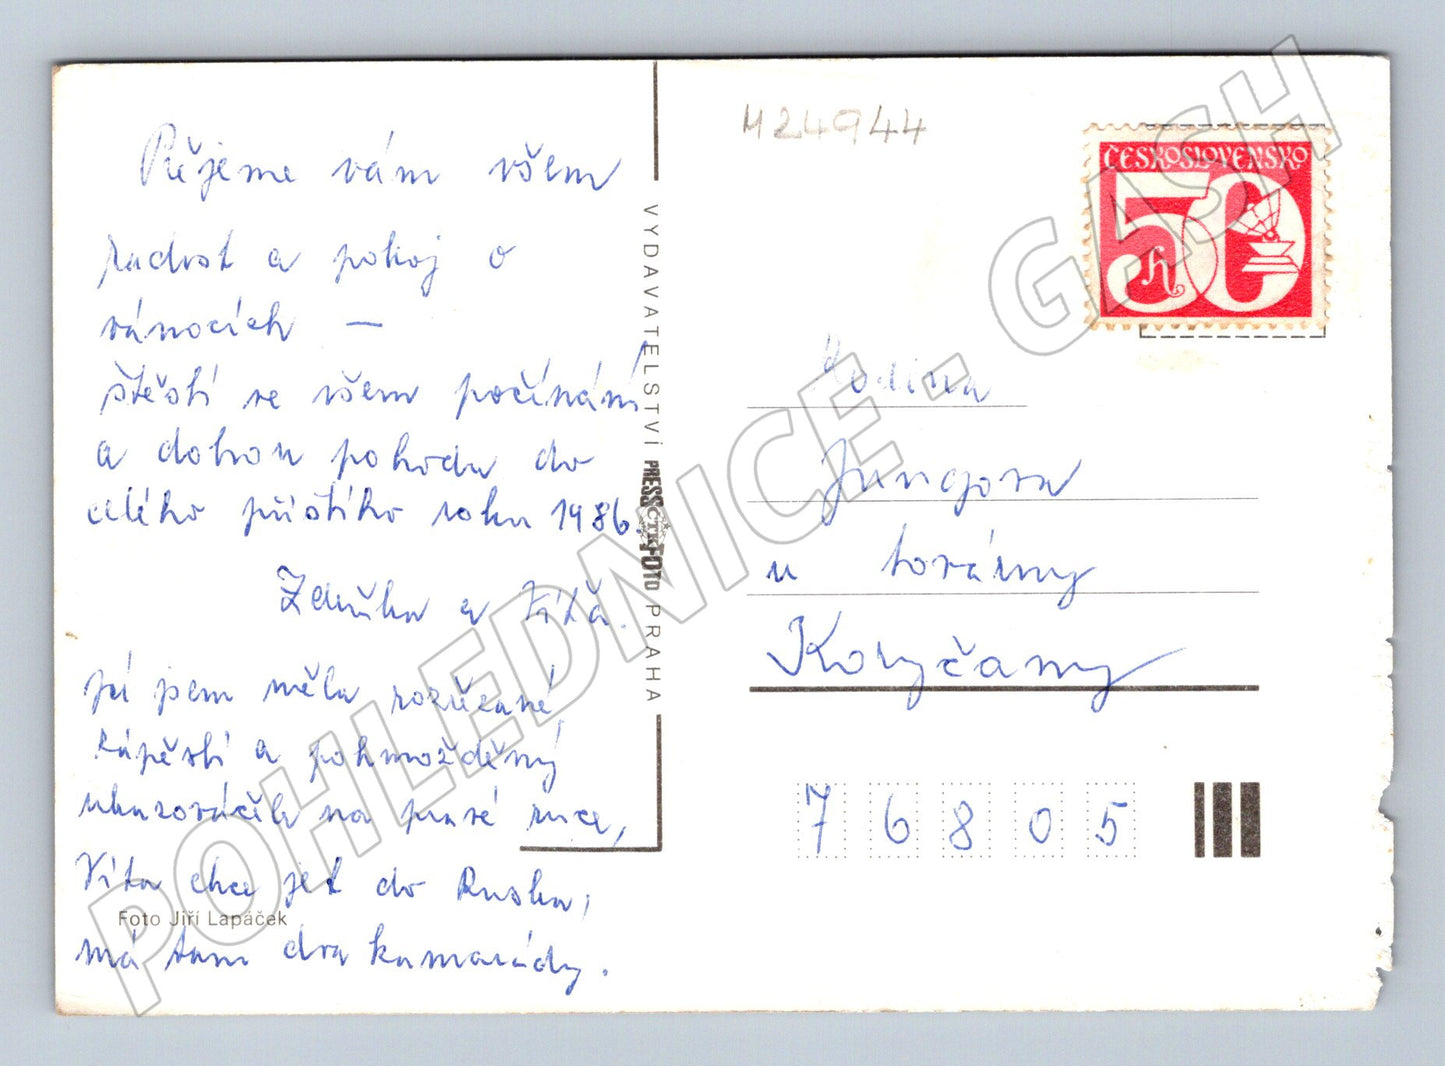 Přejeme vám všem
radost a pokoj o
vánocích —
štěstí ve všem počínání
a dobrou pohodu do
celého příštího roku 1986.
Zdeňka a Víťa.
Já jsem měla rozřezané
zápěstí a pohmožděný
ukazováček na pravé ruce,
Víťa chce jet do Ruska,
má tam dva kamarády.
Foto Jiří Lapáček
VYDAVATELSTVÍ PRESSFOTO PRAHA
ČTK
M24944
ČESKOSLOVENSKO
50 h
Rodina
Jungova
u továrny
Koryčany
76805
POHLEDNICE - GASH